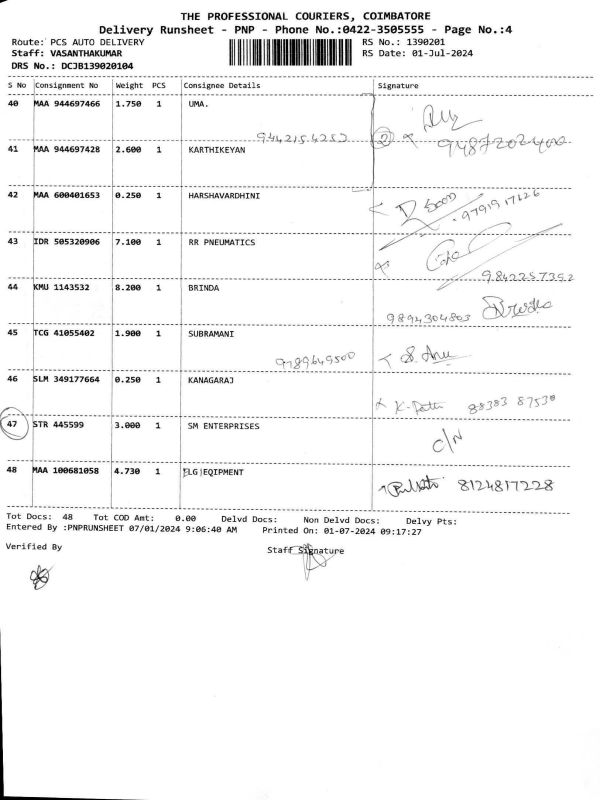 THE PROFESSIONAL COURIERS, COIMBATORE
Delivery Runsheet - PNP - Phone No.:0422-3505555 - Page No.:4
Route: PCS AUTO DELIVERY RS No.: 1390201
Staff: VASANTHAKUMAR RS Date: 01-Jul-2024
DRS No.: DCJB139020104
S No Consignment No Weight PCS Consignee Details Signature
40 MAA 944697466 1.750 1 UMA.
9442154252 2
41 MAA 944697428 2.600 1 KARTHIKEYAN
42 MAA 600401653 0.250 1 HARSHAVARDHINI
9791917626
43 IDR 505320906 7.100 1 RR PNEUMATICS
9842257352
44 KMU 1143532 8.200 1 BRINDA
9894304803
45 TCG 41055402 1.900 1 SUBRAMANI
9789649500
46 SLM 349177664 0.250 1 KANAGARAJ
88383 87530
47 STR 445599 3.000 1 SM ENTERPRISES
C/N
48 MAA 100681058 4.730 1 ELG EQIPMENT
8124817228
Tot Docs: 48 Tot COD Amt: 0.00 Delvd Docs: Non Delvd Docs: Delvy Pts:
Entered By :PNPRUNSHEET 07/01/2024 9:06:40 AM Printed On: 01-07-2024 09:17:27
Verified By Staff Signature